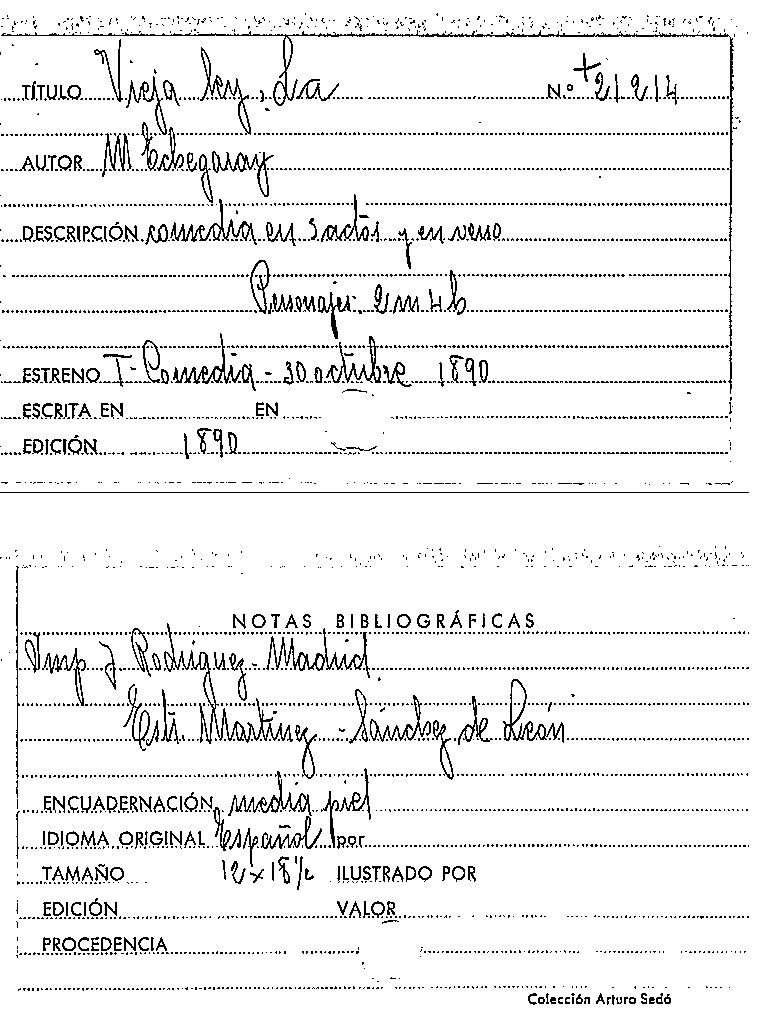 TÍTULO Vieja ley, La N.º +21214
AUTOR M Echegaray
DESCRIPCIÓN comedia en 3 actos y en verso
Personajes: 2 m 4 h
ESTRENO T- Comedia - 30 octubre 1890
ESCRITA EN EN
EDICIÓN 1890
NOTAS BIBLIOGRÁFICAS
Imp J. Rodriguez - Madrid
Estr. Martinez - Sánchez de León
ENCUADERNACIÓN media piel
IDIOMA ORIGINAL Español por
TAMAÑO 12 x 18½ ILUSTRADO POR
EDICIÓN VALOR
PROCEDENCIA
Colección Arturo Sedó